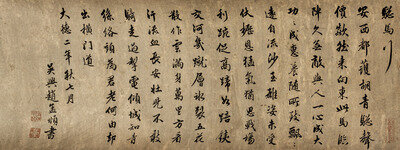 驄馬行
安西都護胡青驄聲
價歘然來向東此馬臨
陣久無敵與人一心成大
功成惠養隨所致飄
遠自流沙至雄姿未受
伏櫪恩猛氣猶思戰場
利踠促高蹄如踣鐵
交河幾蹴層冰裂五花
散作雲滿身萬里方看
汗流血長安壯兒不敢
騎走過掣電傾城知青
絲絡頭為君老何由却
出橫門道
大德二年秋七月
吳興趙孟頫書